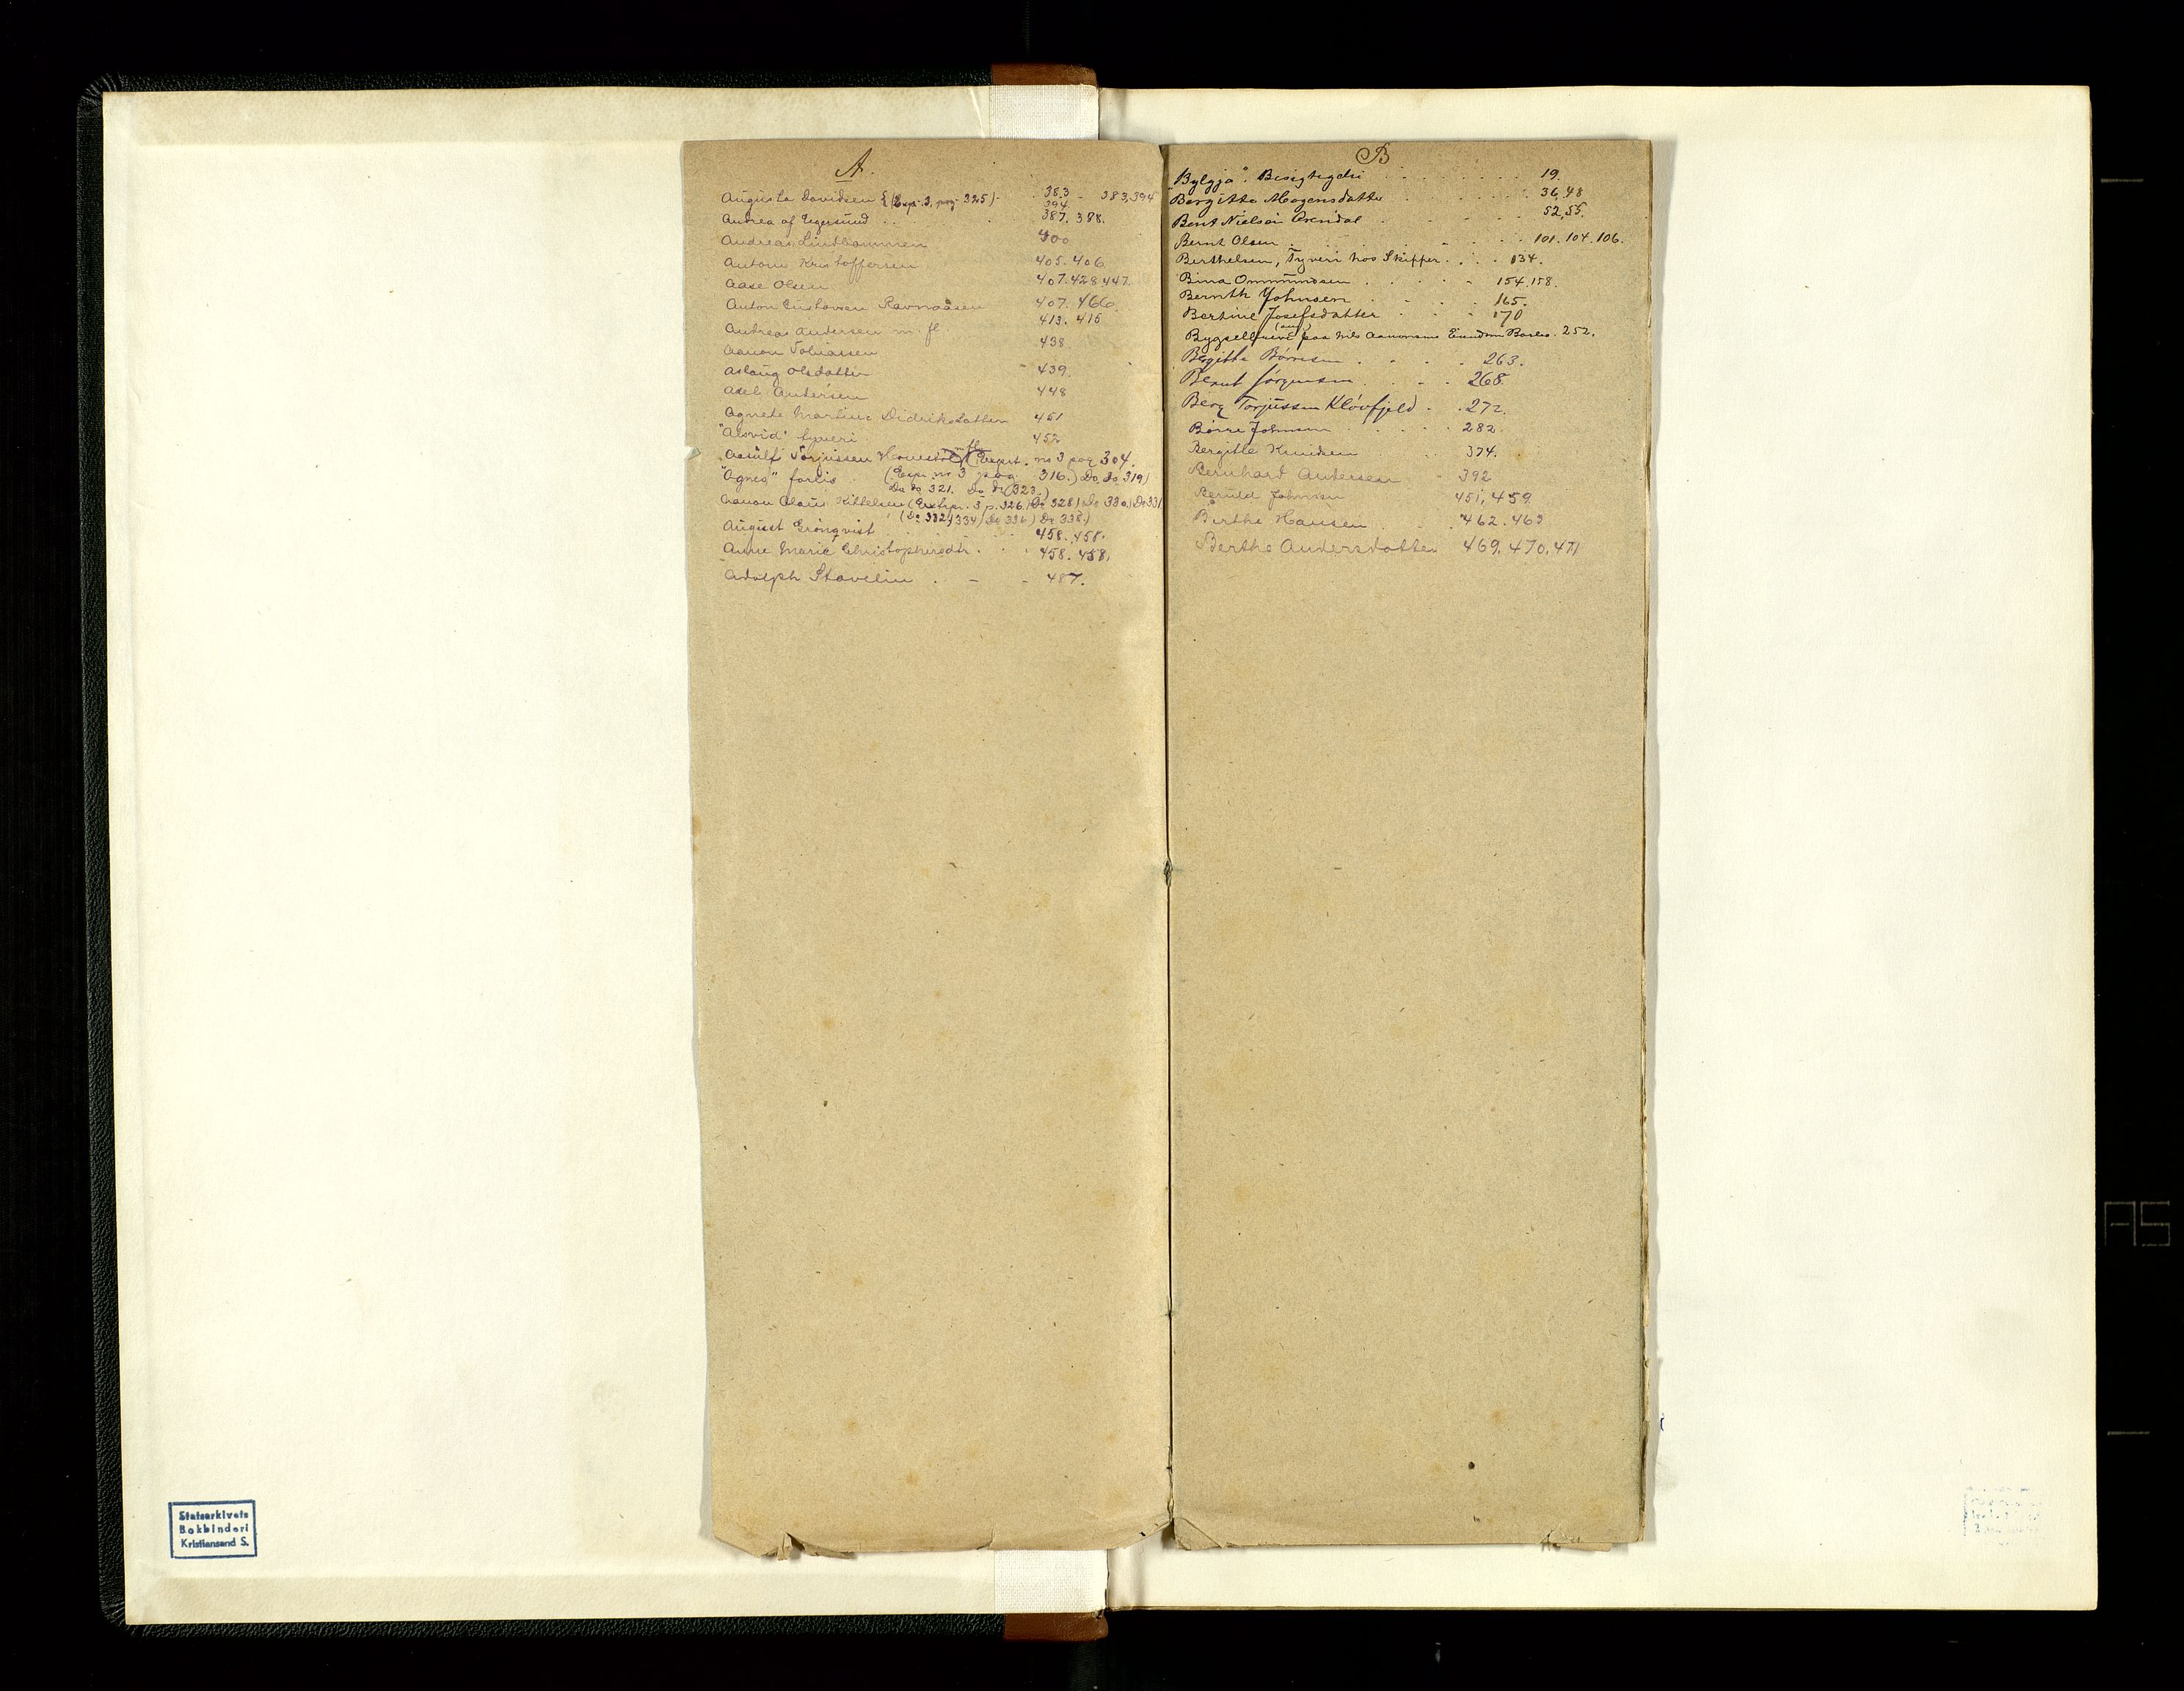 A.
Augusta Davidsen {(Exp. 3, pag. 325) - 383 - 383, 394
394
Andrea af Egersund 387. 388.
Andreas 400
Antoni Kristoffersen 405. 406
Aase Olsen 407. 428 447.
Anton Gustavsen Ravnaasen 407. 466
Andreas Andersen m. fl. 413. 415
Aanon Tobiassen 438
Aslaug Olsdatter 439.
Axel Andersen 448
Agnete Martine Didriksdatter 451
"Alsvid" tyveri 452
m fl
Aasulf Torjussen (Expr. no 3 pag 304.
"Agnes" forlis. (Expr. no 3 pag. 316.) Do. Do. 319)
Do do 321. Do do (323.)
Aanon Olaus Kittelsen (Extrpr. 3 p. 326.) Do 328) Do 330) Do 331
(Do 332) 334) Do 336) Do 338.)
August Grönqvist 458. 458.
Anne Marie Christophersdtr. 458. 458.
Adolph Stavelin - - 487.
B
"Bylgja". Besigtigelse 19.
Bergitte Mogensdatter 36, 48
Bent Nielsen Arendal 52, 55.
Bernt Olsen 101. 104. 106.
Berthelsen, Tyveri hos Skipper 134.
Bina Ommundsen 154. 158.
Bernth Johnsen 165.
Bertine Josefsdatter 170
paa Nils Aanonsens Eiendom 252.
Bergitte Børresen 263.
Bernt Jörgensen 268.
Berg Torjussen Klövfjeld 272.
Börre Johnsen 282
Bergitte Knudsen 374.
Bernhard Andersen - 392
Berüld Johnsen 451, 459.
Birthe Hansen 462. 463
Berthe Andersdatter 469, 470, 471
Statsarkivets
Bokbinderi
Kristiansand S.